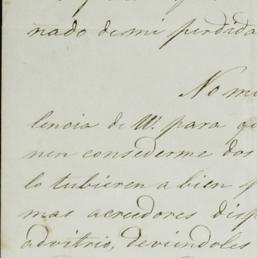 nado de mi perdida
No mi
lencia de W. para
nen consederme dos
lo tubieren a bien
mas acreedores disp
advitrio, deviéndoles